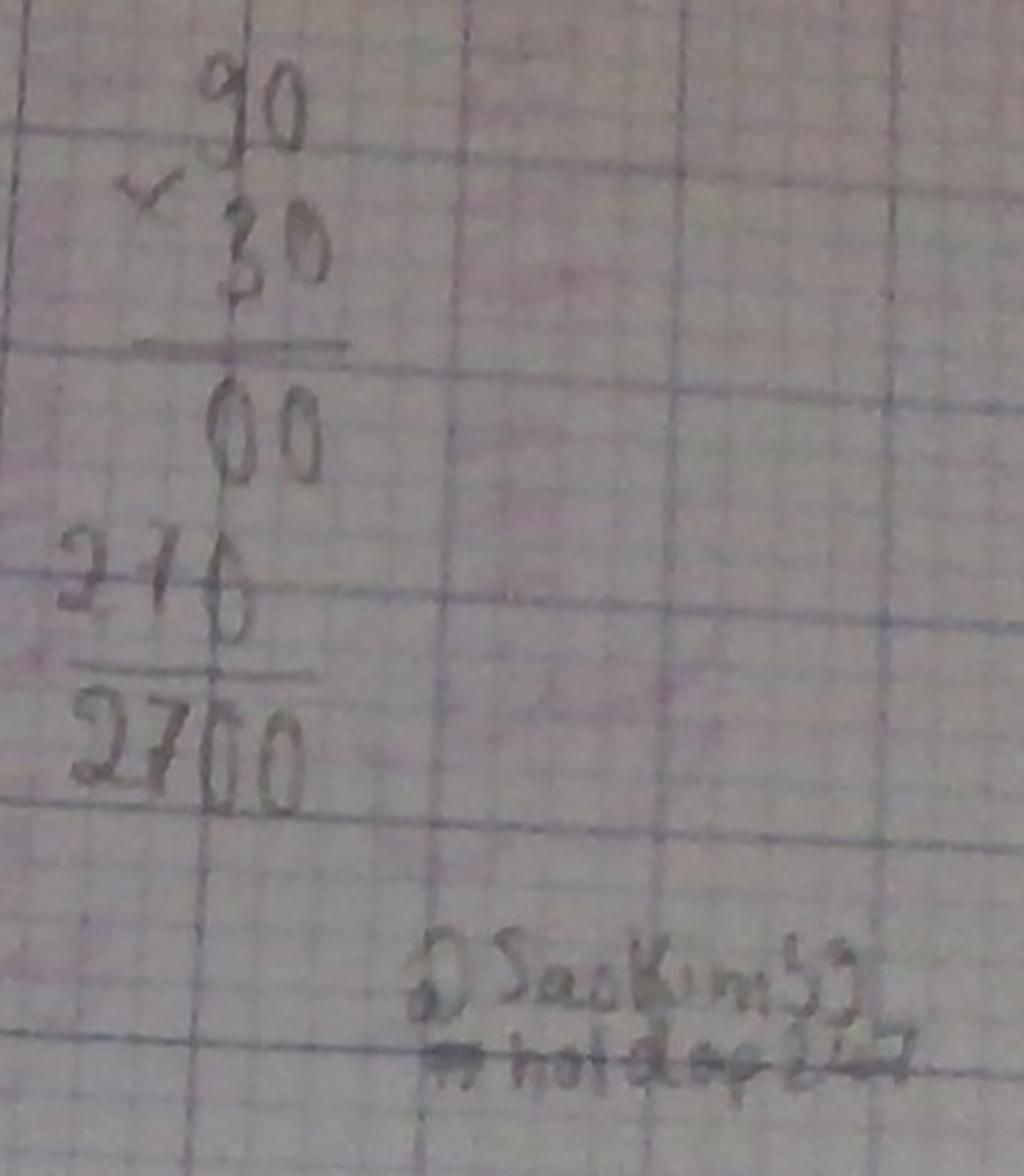 90
×
30
00
270
2700
@SaoKim99
hoidap247